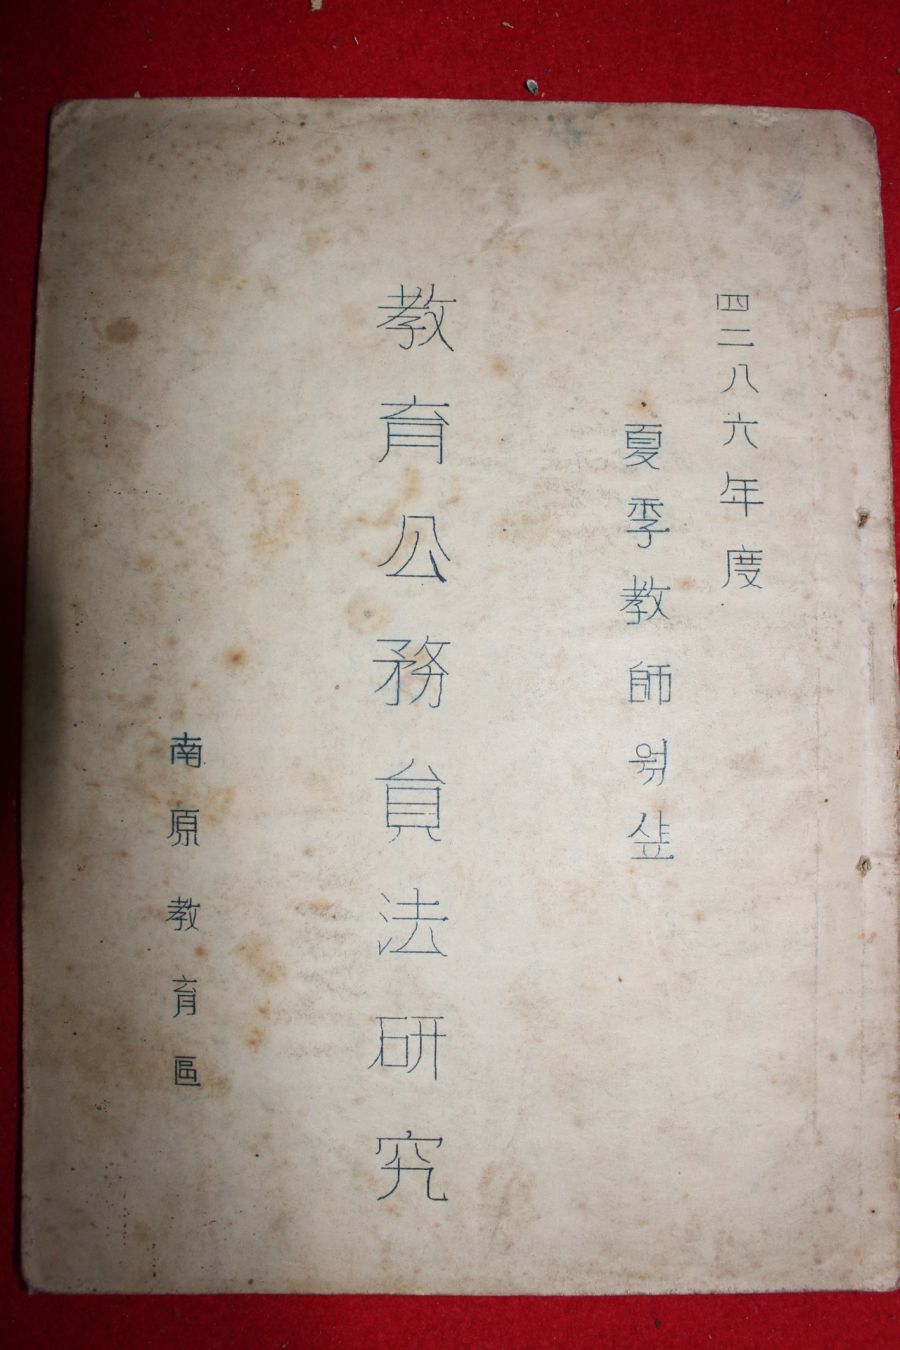 四二八六年度
夏季教師웤샾
教育公務員法研究
南原教育區